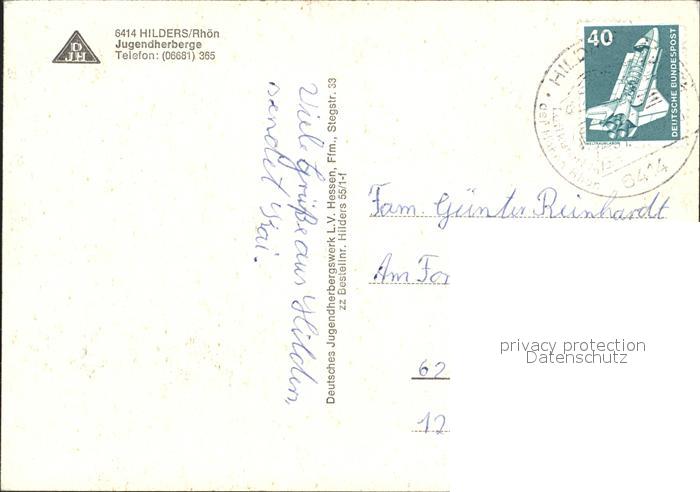 DJH
6414 HILDERS/Rhön
Jugendherberge
Telefon: (06681) 365
Viele Grüße aus Hilders,
sendet
Deutsches Jugendherbergswerk L.V. Hessen, Ffm., Stegstr. 33
zz Bestellnr. Hilders 55/1-f
40
DEUTSCHE BUNDESPOST
WELTRAUMLABOR
HILD
6414
Fam. Günter Reinhardt
Am For
62
12
privacy protection
Datenschutz